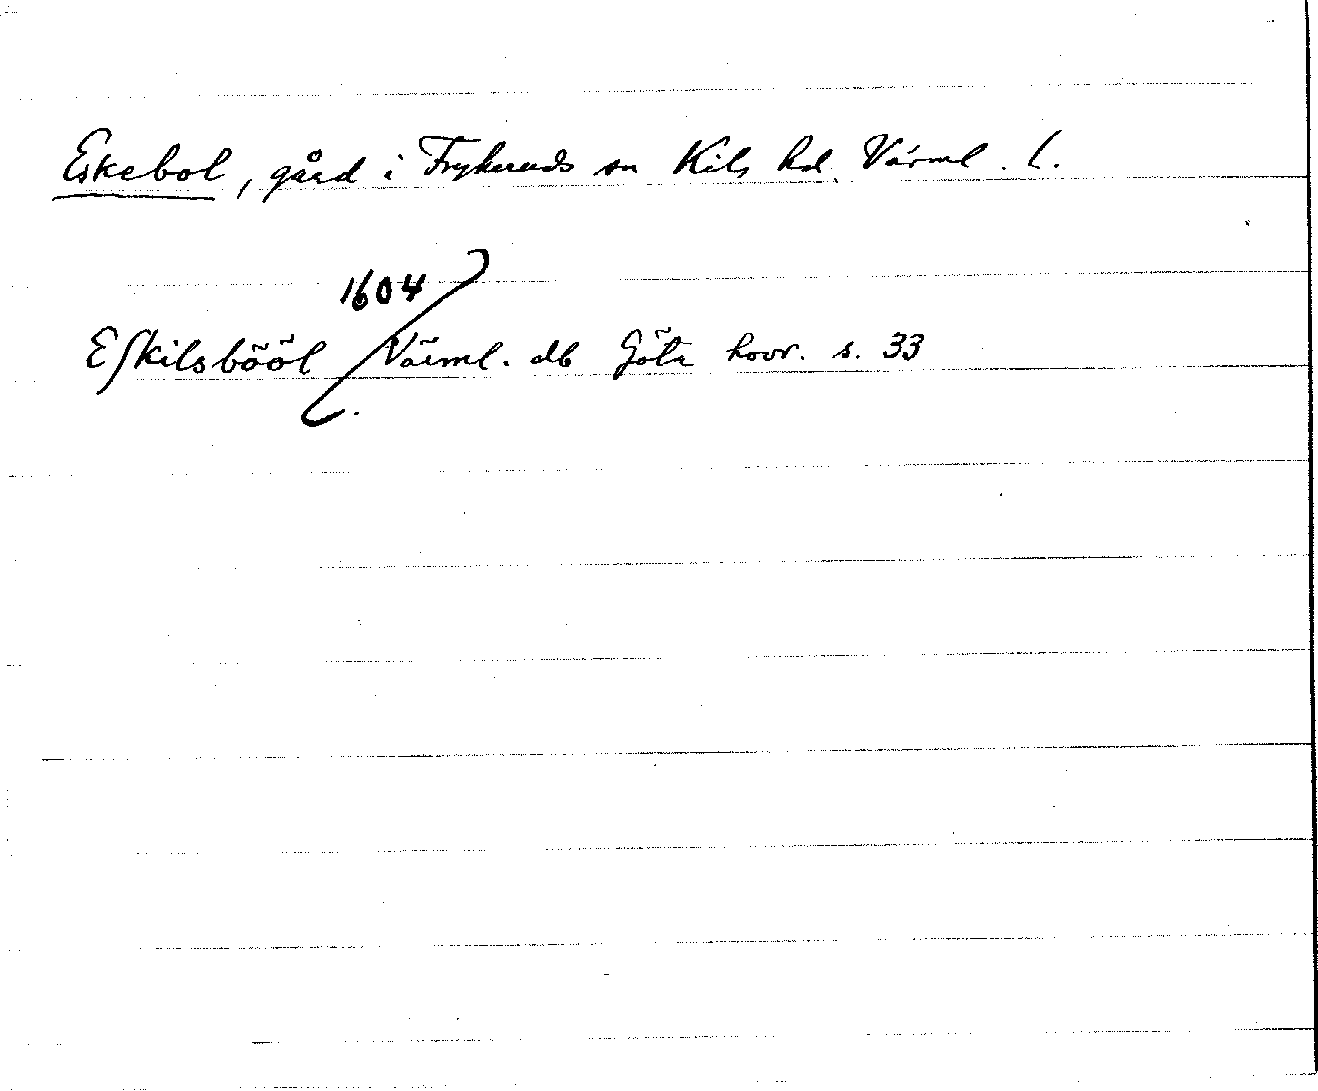 Eskebol, gård i Frykeruds sn Kils hd. Värml. l.
1604
Eſkilsbööl Värml. db Göta hovr. s. 33